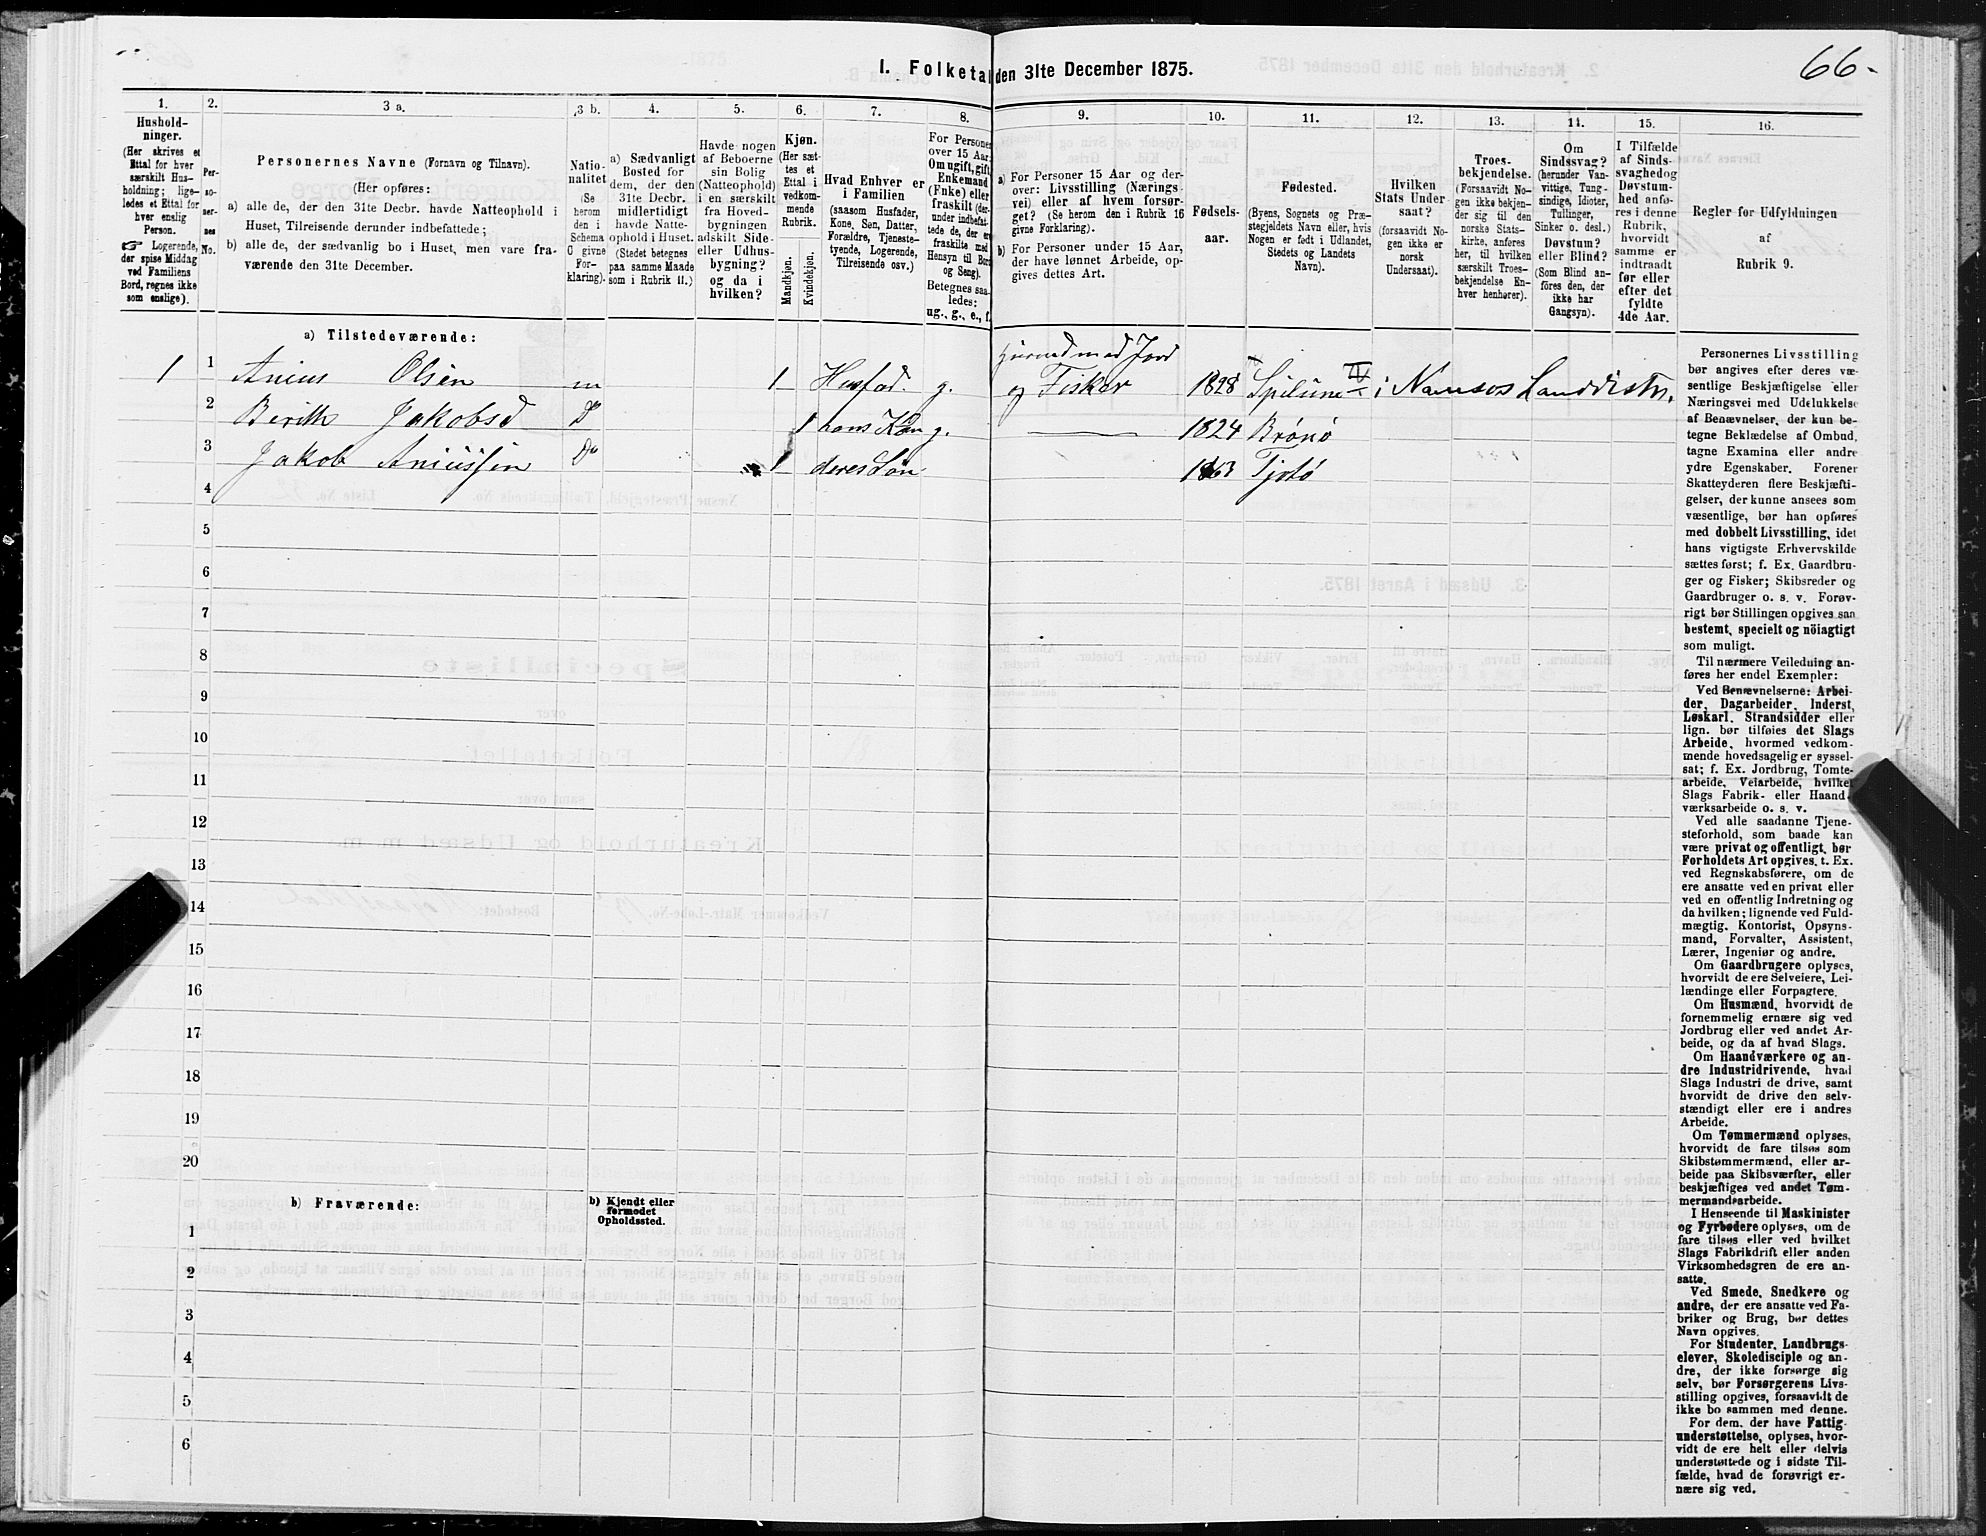 66.
I. Folketal den 31te December 1875.
1.
2.
3 a.
3 b.
4.
5.
6.
7.
8.
9.
10.
11.
12.
13.
14.
15.
16.
Hushold-
ninger.
(Her skrives et
Ettal for hver
særskilt Hus-
holdning; lige-
ledes et Ettal for
hver enslig
Person.
☞ Logerende,
der spise Middag
ved Familiens
Bord, regnes ikke
som enslige).
Per-
so-
ner-
nes
No.
Personernes Navne (Fornavn og Tilnavn).
(Her opføres:
a) alle de, der den 31te Decbr. havde Natteophold i
Huset, Tilreisende derunder indbefattede;
b) alle de, der sædvanlig bo i Huset, men vare fra-
værende den 31te December.
Natio-
nalitet
(Se
herom
den i
Schema
O givne
For-
klaring).
a) Sædvanligt
Bosted for
dem, der den
31te Decbr.
midlertidigt
havde Natte-
ophold i Huset.
(Stedet betegnes
paa samme Maade
som i Rubrik 11.)
Havde nogen
af Beboerne
sin Bolig
(Natteophold)
i en særskilt
fra Hoved-
bygningen
adskilt Side-
eller Udhus-
bygning?
og da i
hvilken?
Kjøn.
(Her sæt-
tes et
Ettal i
vedkom-
mende
Rubrik.
Mandkjøn.
Kvindekjøn.
Hvad Enhver er
i Familien
(saasom Husfader,
Kone, Søn, Datter,
Forældre, Tjeneste-
tyende, Logerende,
Tilreisende osv.)
For Personer
over 15 Aar:
Om ugift, gift,
Enkemand
(Enke) eller
fraskilt (der-
under indbefat-
tede de, der ere
fraskilte med
Hensyn til Bord
og Seng).
Betegnes saa-
ledes:
ug., g., e., f.
a) For Personer 15 Aar og der-
over: Livsstilling (Nærings-
vei) eller af hvem forsør-
get? (Se herom den i Rubrik 16
givne Forklaring).
b) For Personer under 15 Aar,
der have lønnet Arbeide, op-
gives dettes Art.
Fødsels-
aar.
Fødested.
(Byens, Sognets og Præ-
stegjeldets Navn eller, hvis
Nogen er født i Udlandet,
Stedets og Landets
Navn).
Hvilken
Stats Under
saat?
(forsaavidt No-
gen ikke er
norsk
Undersaat).
Troes-
bekjendelse.
(Forsaavidt No-
gen ikke bekjen-
der sig til den
norske Stats-
kirke, anføres
her, til hvilken
særskilt Troes-
bekjendelse En-
hver henhører).
Om
Sindssvag?
(herunder Van-
vittige, Tung-
sindige, Idioter,
Tullinger,
Sinker o. desl.)
Døvstum?
eller Blind?
(Som Blind an-
föres den, der
ikke har
Gangsyn).
I Tilfælde
af Sinds-
svaghed og
Døvstum-
hed anfø-
res i denne
Rubrik,
hvorvidt
samme er
indtraadt
før eller
efter det
fyldte
4de Aar.
Regler for Udfyldningen
af
Rubrik 9.
a) Tilstedeværende:
1 1 Anius Olsen m 1 Husfad. g. Husmand med Jord og Fisker 1828 Spilum IV i Namsos Landdistr.
2 Berith Jakobsd Do 1 hans Kon g. — 1824 Brønø
3 Jakob Aniussen Do 1 deres Søn 1863 Tjøtø
4
5
6
7
8
9
10
11
12
13
14
15
16
17
18
19
20
b) Fraværende:
b) Kjendt eller
formodet
Opholdssted.
1
2
3
4
5
6
Personernes Livsstilling
bør angives efter deres væ-
sentlige Beskjæftigelse eller
Næringsvei med Udelukkelse
af Benævnelser, der kun be-
tegne Beklædelse af Ombud,
tagne Examina eller andre
ydre Egenskaber. Forener
Skatteyderen flere Beskjæfti-
gelser, der kunne ansees som
væsentlige, bør han opføres
med dobbelt Livsstilling, idet
hans vigtigste Erhvervskilde
sættes først; f. Ex. Gaardbru-
ger og Fisker; Skibsreder og
Gaardbruger o. s. v. Forøv-
rigt bør Stillingen opgives saa
bestemt, specielt og nöiagtigt
som muligt.
Til nærmere Veiledning an-
føres her endel Exempler:
Ved Benævnelserne: Arbei-
der, Dagarbeider, Inderst,
Løskarl, Strandsidder eller
lign. bør tilføies det Slags
Arbeide, hvormed vedkom-
mende hovedsagelig er syssel-
sat; f. Ex. Jordbrug, Tomte-
arbeide, Veiarbeide, hvilket
Slags Fabrik- eller Haand-
værksarbeide o. s. v.
Ved alle saadanne Tjene-
steforhold, som baade kan
være privat og offentligt, bør
Forholdets Art opgives, t. Ex.
ved Regnskabsførere, om de
ere ansatte ved en privat eller
ved en offentlig Indretning og
da hvilken; lignende ved Fuld-
mægtig, Kontorist, Opsyns-
mand, Forvalter, Assistent,
Lærer, Ingeniør og andre.
Om Gaardbrugere oplyses,
hvorvidt de ere Selveiere, Lei-
lændinge eller Forpagtere.
Om Husmænd, hvorvidt de
fornemmelig ernære sig ved
Jordbrug eller ved andet Ar-
beide, og da af hvad Slags.
Om Haandværkere og an-
dre Industridrivende, hvad
Slags Industri de drive, samt
hvorvidt de drive den selv-
stændigt eller ere i andres
Arbeide.
Om Tømmermænd oplyses,
hvorvidt de fare tilsøs som
Skibstømmermænd, eller ar-
beide paa Skibsværfter, eller
beskjæftiges ved andet Tøm-
mermandsarbeide.
I Henseende til Maskinister
og Fyrbødere oplyses, om de
fare tilsøs eller ved hvilket
Slags Fabrikdrift eller anden
Virksomhedsgren de ere an-
satte.
Ved Smede, Snedkere og
andre, der ere ansatte ved Fa-
briker og Brug, bør dettes
Navn opgives.
For Studenter, Landbrugs-
elever, Skoledisciple og an-
dre, der ikke forsørge sig
selv, bør Forsørgerens Livs-
stilling opgives, forsaavidt de
ikke bo sammen med denne.
For dem, der have Fattig-
understøttelse, oplyses, hvor-
vidt de ere helt eller delvis
understøttede og i sidste Til-
fælde, hvad de forøvrigt er-
nære sig ved.